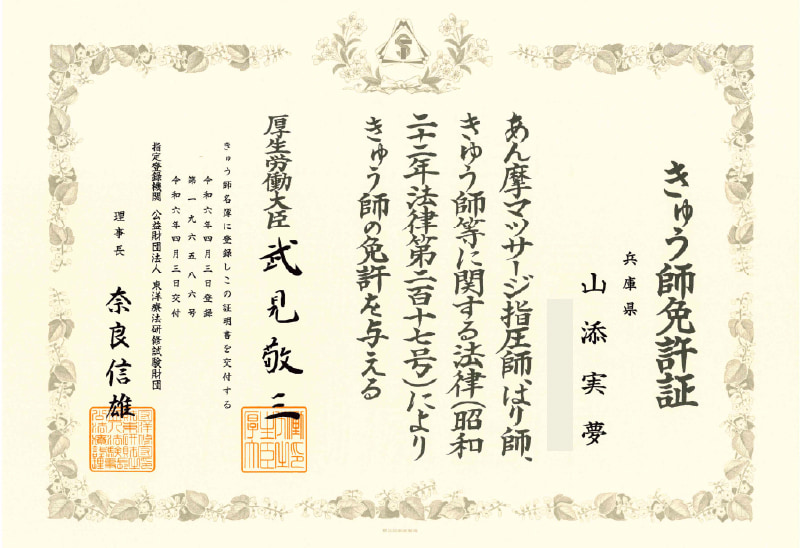 きゅう師免許証
兵庫県
山添実夢
あん摩マッサージ指圧師、はり師、
きゅう師等に関する法律(昭和
二十二年法律第二百十七号)により
きゅう師の免許を与える
厚生労働大臣 武見敬三
きゅう師名簿に登録しこの証明書を交付する
令和六年四月三日登録
第一九六五八六号
令和六年四月三日交付
指定登録機関 公益財団法人 東洋療法研修試験財団
理事長 奈良信雄